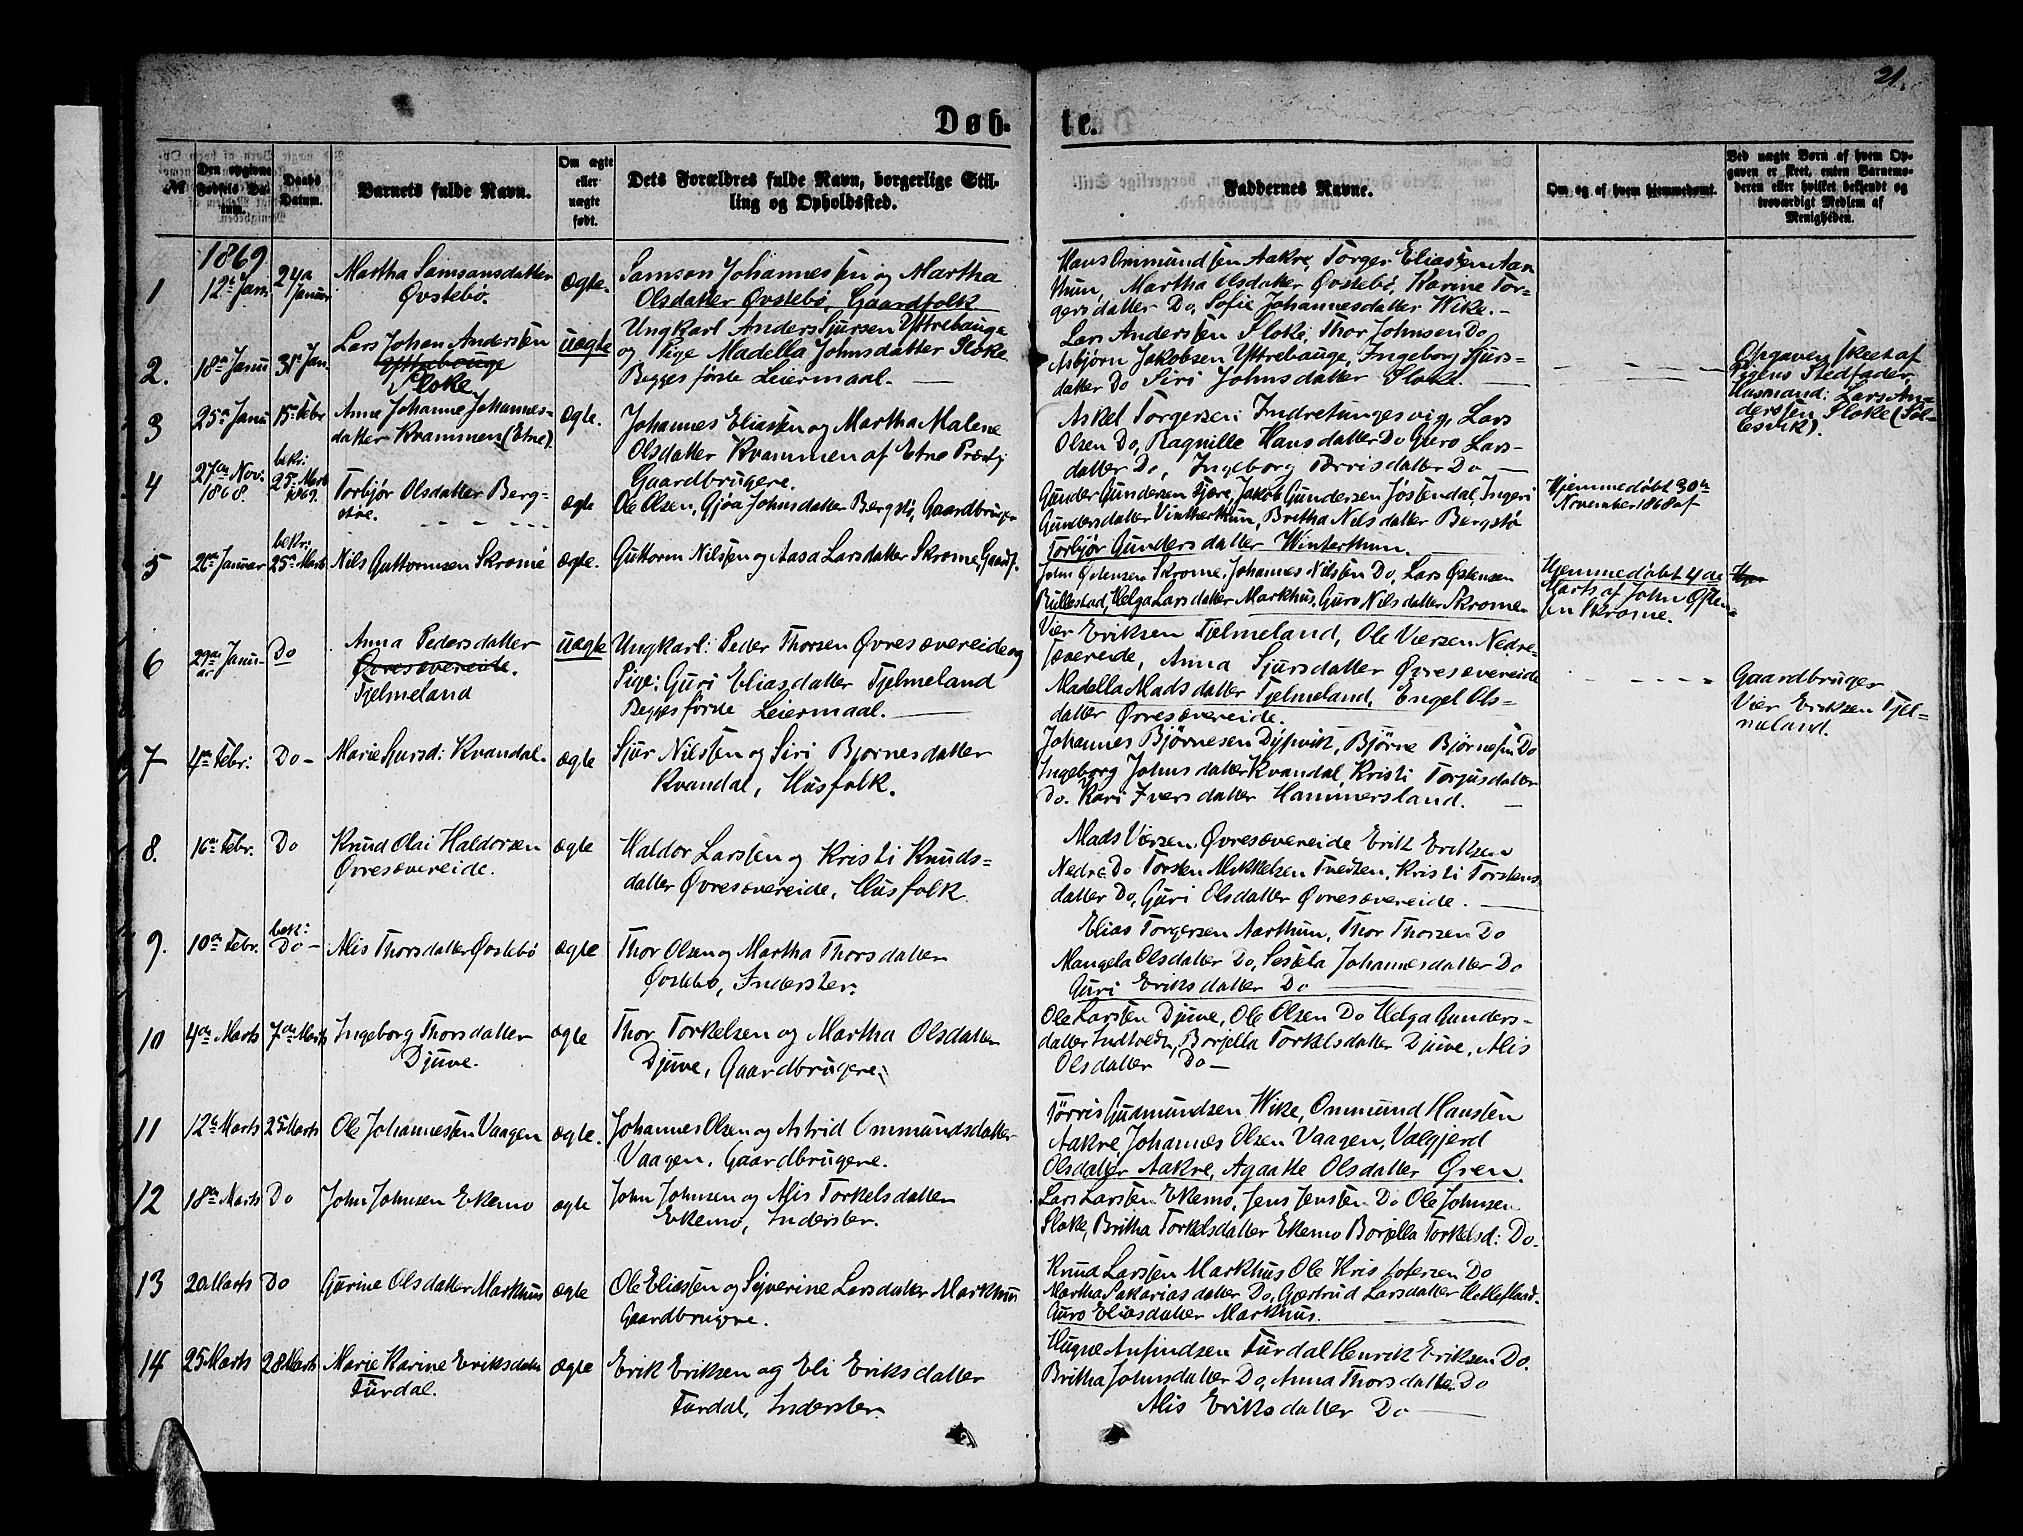 21.
Døb- te.
№
Den opgivne Fødsels Datum.
Daabs Datum.
Barnets fulde Navn.
Om ægte eller uægte født.
Dets Forældres fulde Navn, borgerlige Stilling og Opholdssted.
Faddernes Navne.
Om og af hvem hjemmedøbt.
Ved uægte Børn af hvem Opgaven er skeet, enten Barnemoderen eller hvilket bekjendt og troværdigt Medlem af Menigheden.
1869
1 12te Jan. 24de Januar Martha Samsonsdatter Øvstebø. ægte. Samson Johannessen og Martha
Olsdatter Øvstebø, Gaardfolk
Hans Ommundsen Aakre, Torger Eliassen Aar-
thun, Martha Olsdatter Øvstebø, Karine Tor-
gersdatter Do, Sofie Johannesdatter Wike. –
2. 18de Janu 31te Jan. Lars Johan Andersen Yttrebauge Sloke uægte Ungkarl Anders Sjursen Yttrebauge
og Pige Madella Johnsdatter Sloke
Begges første Leiermaal. —
Lars Andersen Sloke, Thor Johnsen Do
Asbjørn Jakobsen Yttrebauge, Ingeborg Sjurs-
datter Do Siri Johnsdatter Sloke. —
Opgaven skeet af
Pigens Stedfader,
Husmand: Lars An-
dersen Sloke (Søl-
lesvik).
3 25de Janu 15de Febr Anne Johanne Johannes-
datter Kvammen (Etne). ægte. Johannes Eliassen og Martha Malene
Olsdatter Kvammen af Etne Præstgj
Gaardbrugere.
Askel Torgersen Indretungesvig, Lars
Olsen Do, Ragnille Hansdatter Do Guro Lars-
datter Do, Ingeborg Tørrisdatter Do —
4 27de Nov: 1868. bekr: 25de Mart 1869. Torbjør Olsdatter Berg-
støe. ægte Ole Olsen, Gjøa Johnsdatter Bergstø, Gaardbruger
Gunder Gundersen Fjære, Jakob Gundersen Jøsendal, Ingeri
Gundersdatter Vintherthun, Britha Nilsdatter Bergstø
Torbjør Gundersdatter Winterthun.
Hjemmedøbt 30te
November 1868 af
5 20de Januar bekr: 25de Marts Nils Guttormsen Skromé ægte. Guttorm Nilsen og Aasa Larsdatter Skrome, Gaardf.
John Østensen Skrome, Johannes Nilsen Do, Lars Østensen
Rullestad, Helga Larsdatter Markhus, Guro Nilsdatter Skromen
Hjemmedøbt 4de
Marts af John Østen-
sen Skrome.
6 29de Januar Do Anna Pedersdatter
Øvresævereide.
Fjelmeland uægte Ungkarl: Peder Thorsen Øvresævereide og
Pige: Guri Eliasdatter Fjelmeland
Begges første Leiermaal. —
Vier Eriksen Fjelmeland, Ole Viersen Nedre-
sævereide, Anna Sjursdatter Øvresævereide
Madella Madsdatter Fjelmeland, Engel Ols-
datter Øvresævereide.
Gaardbruger
Vier Eriksen Fjel-
meland.
7 4de Febr: Do – Marie Sjursd: Kvandal. ægte Sjur Nilsen og Siri Bjørnesdatter
Kvandal, Husfolk.
Johannes Bjørnesen Dypvik, Bjørne Bjørnesen Do
Ingeborg Johnsdatter Kvandal Kristi Torjusdatter
Do. Kari Iversdatter Hammersland. —
8. 16de Febr. Do Knud Olai Haldorsen
Øvresævereide. ægte Haldor Larsen og Kristi Knuds-
datter Øvresævereide, Husfolk
Mads Viersen Øvresævereide Erik Eriksen
Nedre Do Torsten Mikkelsen Tvedten, Kristi Torstens
datter Do, Guri Olsdatter Øvresævereide. —
9. 10de Febr. bek: Do – Alis Thorsdatter Øvstebø ægte Thor Olsen og Martha Thorsdatter
Øvstebø, Inderster.
Elias Torgersen Aarthun, Thor Thorsen Do
Mangela Olsdatter Do, Sesela Johannesdatter Do
Guri Eriksdatter Do —
10 4de Marts 7de Marts Ingeborg Thorsdatter
Djuve. ægte Thor Torkelsen og Martha Olsdatter
Djuve, Gaardbrugere.
Ole Larsen Djuve, Ole Olsen Do Helga Gunders-
datter Indtvedt, Borjella Torkelsdatter Djuve, Alis
Olsdatter Do –
11 12te Marts 25 Marts Ole Johannessen Vaagen ægte. Johannes Olsen og Astrid Ommundsdatter
Vaagen, Gaardbrugere.
Tørris Gudmundsen Wike, Ommund Hansen
Aakre, Johannes Olsen Vaagen, Valgjerd
Olsdatter Aakre, Agaate Olsdatter Øren.
12 18de Marts Do John Johnsen Ekemo ægte John Johnsen og Alis Torkelsdatter
Ekemo, Inderster.
Lars Larsen Ekemo, Jens Jensen Do Ole Johnsen
Sloke, Britha Torkelsdatter Ekemo Borjella Torkelsd: Do.
13 20 Marts Do Gurine Olsdatter Markhus ægte Ole Eliassen og Syverine Larsdatter Markhus
Gaardbrugere.
Knud Larsen Markhus Ole Kristofersen Do
Martha Sakariasdatter Do, Gjertrud Larsdatter Hetleflaad.
Guro Eliasdatter Markhus.
14 25 Marts 28 Marts Marie Karine Eriksdatter
Furdal. ægte Erik Eriksen og Eli Eriksdatter
Furdal, Inderster.
Hugne Anfindsen Furdal Henrik Eriksen Do.
Britha Johnsdatter Do, Anna Thorsdatter Do
Alis Eriksdatter Do —